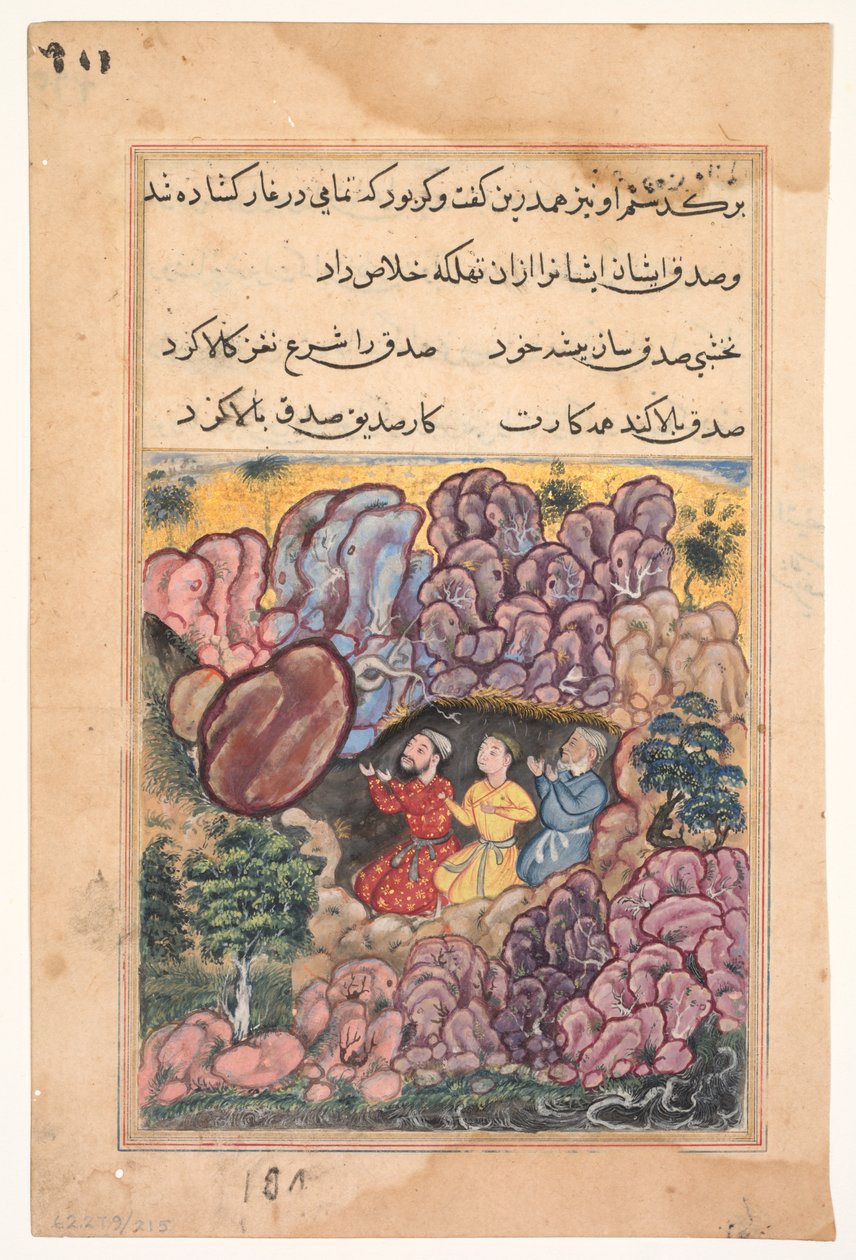 ۲۱۱
برگذشتم او نیز همدرین گفت وگو بود که تمامی در غار کشاده شد
و صدق ایشان ایشانرا ازان تهلکه خلاص داد
نخشبی صدق ساز پیشه خود صدق را شرع نغز کالا کرد
صدق بالا کند همه کارت کار صدیق صدق بالا کرد
۱۵۸
62.279/215